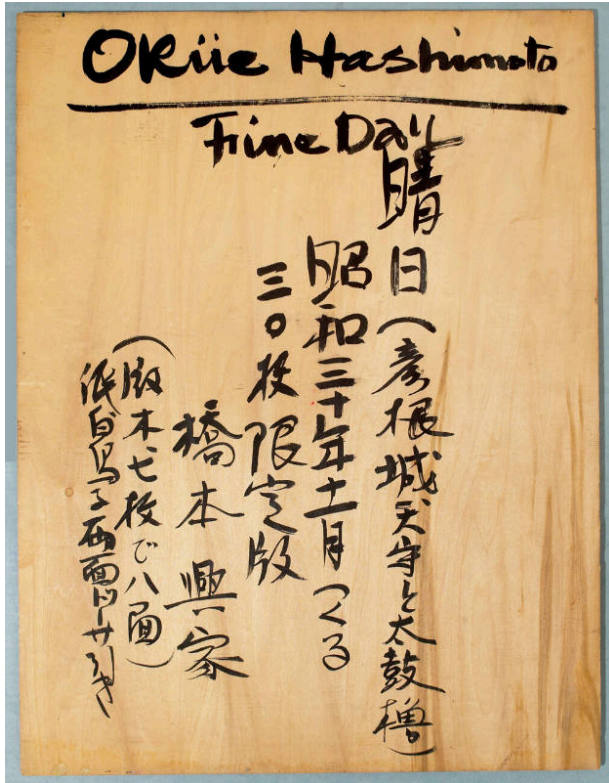 OKiie Hashimoto
Fine Day
晴日（彦根城天守と太鼓櫓）
昭和三十年十一月つくる
三〇枚限定版
橋本興家
（版木七枚で八面）
紙白鳥子両面ドーサ引き